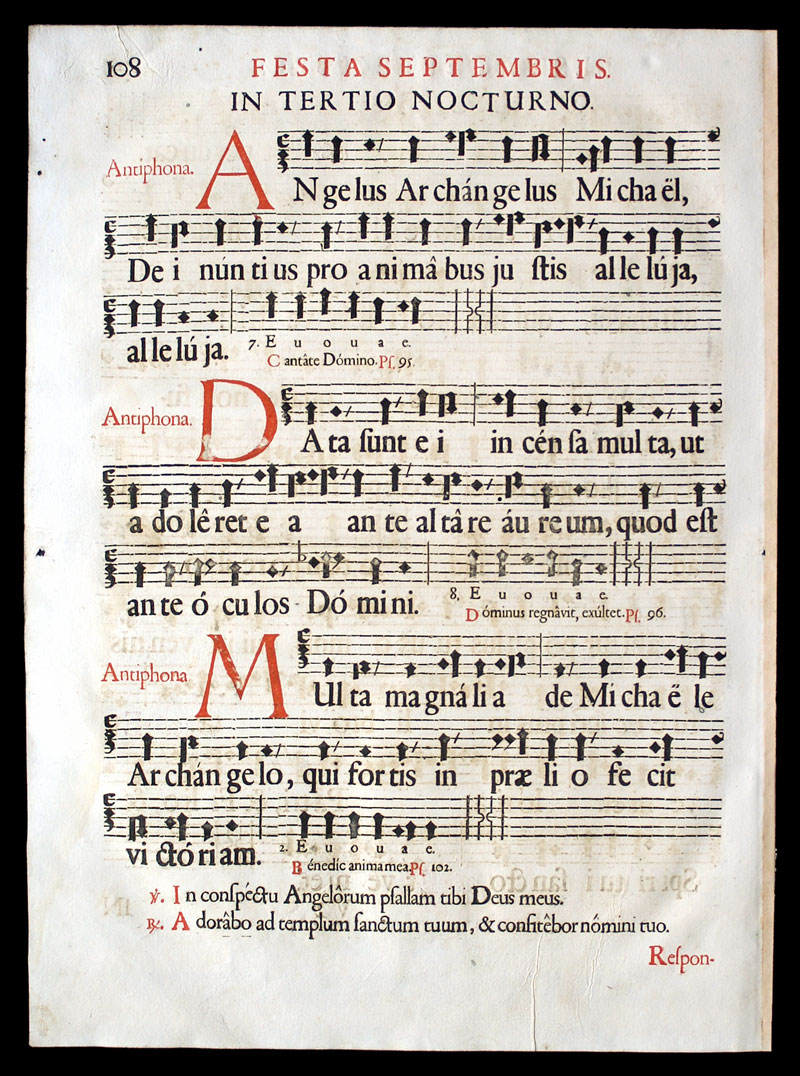 108
FESTA SEPTEMBRIS.
IN TERTIO NOCTURNO.
Antiphona. A
N ge lus Ar chán ge lus Mi cha ël,
De i nún ti us pro a ni mâ bus ju ſtis al le lú ja,
al le lú ja. 7. E u o u a e.
C antâte Dómino. Pſ. 95.
Antiphona. D
A ta ſunt e i in cén ſa mul ta, ut
a do lê ret e a an te al tâ re áu re um, quod eſt
an te ó cu los Dó mi ni. 8. E u o u a e.
D óminus regnâvit, exúltet. Pſ. 96.
Antiphona M
Ul ta ma gná li a de Mi cha ë le
Ar chán ge lo, qui for tis in præ li o fe cit
vi ctó ri am. 2. E u o u a e.
B énedic anima mea. Pſ. 102.
℣. I n conſpéctu Angelôrum pſallam tibi Deus meus.
℟. A dorâbo ad templum ſanctum tuum, & confitêbor nómini tuo.
Reſpon-